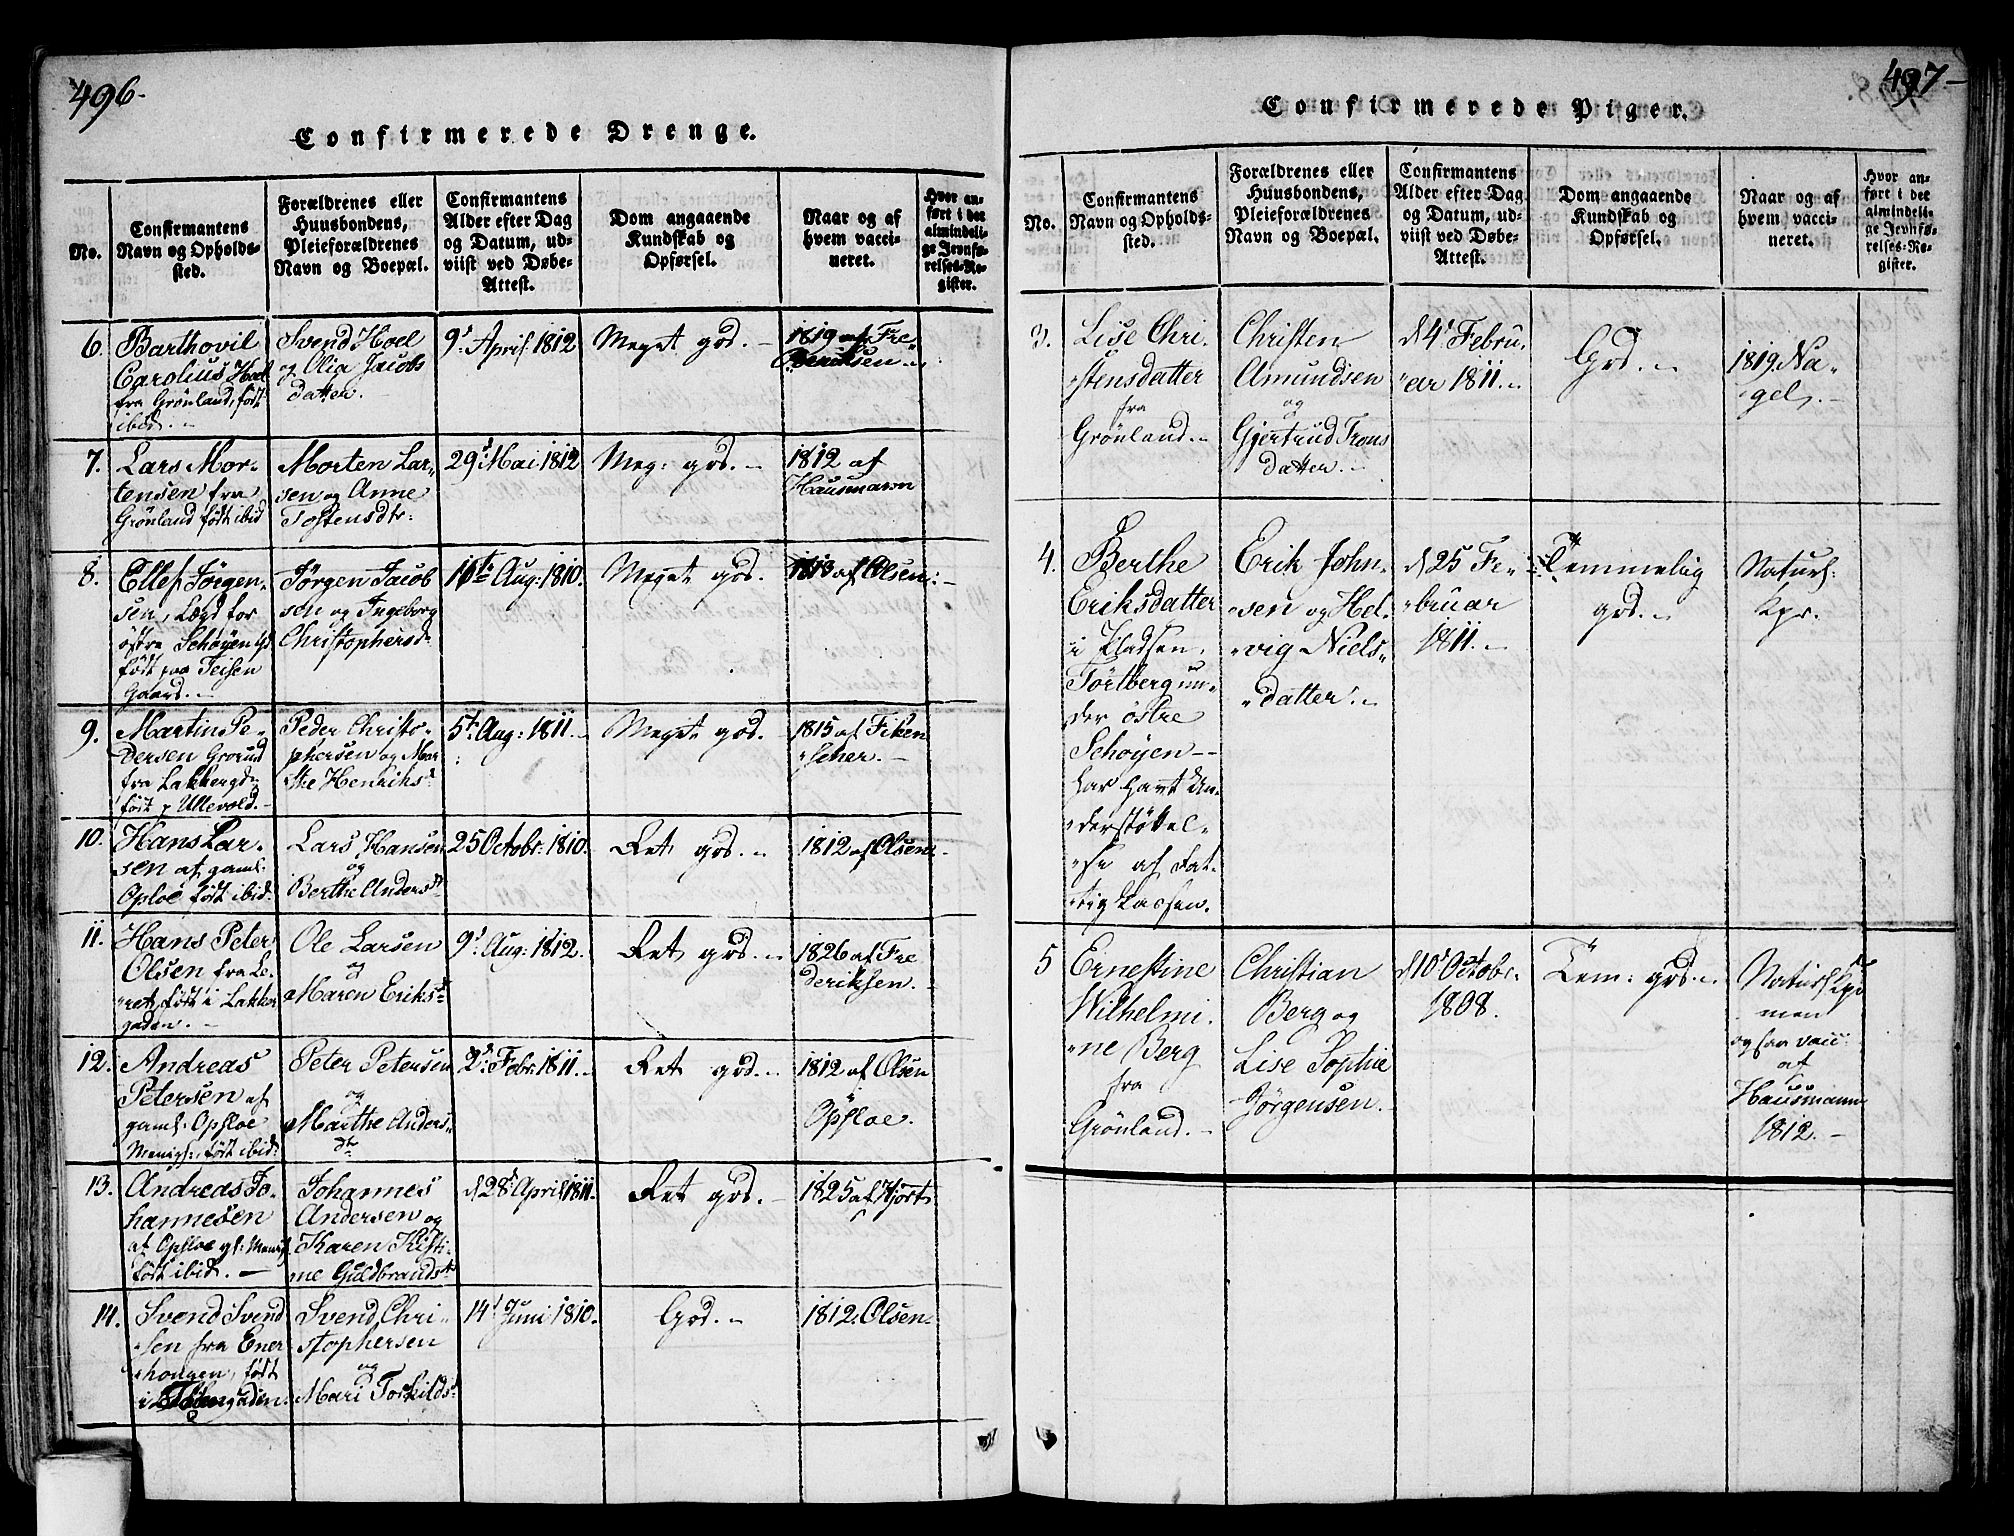 496-
Confirmerede Drenge.
No.
Confirmantens
Navn og Opholds-
sted.
Forældrenes eller
Huusbondens,
Pleieforældrenes
Navn og Boepæl.
Confirmantens
Alder efter Dag
og Datum, ud-
viist ved Døbe-
Attest.
Dom angaaende
Kundskab og
Opførsel.
Naar og af
hvem vacci-
neret.
Hvor an-
ført i det
almindeli-
ge Jevnfø-
relses-Re-
gister.
6.
Barthovil
Carolius Hoel
fra Grönland, født
ibid. -
Svend Hoel
og Olia Jacobs
datter. -
9d April 1812
Meget god. -
1819 af Fre-
7.
Lars Mor-
tensen fra
Grönland født ibid
Morten Lar-
sen og Anne
Tostensdtr:
29d Mai 1812
Meg: god. -
1812 af
Hausmann
8.
Ellef Jörgen-
sen, Lægd for
östre Schöyen
født paa Teisen
Gaard. -
Jörgen Jacob
sen og Ingeborg
Christophersd:
Aug: 1810.
Meget god.
1813 af Olsen: -
9.
Martin Pe-
dersen Grorud
fra Lakkergd:
født p Ullevold. -
Peder Christo-
phersen og Mar
the Henriksd:
5t Aug: 1811. -
Meget god. -
1815 af Fiken
scher. -
10.
Hans Lar-
sen af gaml.
Opsloe født ibid:
Lars Hansen
og
Berthe Andersdt
25 Octobr: 1810.
Ret god. -
1812 af Olsen -
11.
Hans Peter
Olsen fra Le-
ret, født i Lakker
gaden. -
Ole Larsen
og
Maren Eriksdt
9d Aug: 1812.
Ret god. -
1826 af Fre
deriksen. -
12.
Andreas
Petersen af
gaml: Opsloe
Menigh:, født ibid:
Peter Petersen
og
Marthe Anders-
dtr
2d Febr: 1811. -
Ret god. -
1812 af Olsen
Opsloe.
13.
Andreas Jo-
hannesen
af Opsloe gl: Menigh
født ibid. -
Johannes
Andersen og
Karen Kisti-
ne Guldbrandsdt
d 28d April 1811.
Ret god. -
1825 af Hjort
14.
Svend Svend
sen fra Ener
hougen, født
i
Svend Chri-
stophersen
og
Mari Torkildsd:
14d Juni 1810.
God. -
1812. Olsen-
497-
Confirmerede Piger.
No.
Confirmantens
Navn og Opholds-
sted.
Forældrenes eller
Huusbondens,
Pleieforældrenes
Navn og Boepæl.
Confirmantens
Alder efter Dag
og Datum, ud-
viist ved Døbe-
Attest.
Dom angaaende
Kundskab og
Opførsel.
Naar og af
hvem vacci-
neret.
Hvor an-
ført i det
almindeli-
ge Jevnfø-
relses-Re-
gister.
3.
Lise Chri-
stensdatter
fra
Grönland. -
Christen
Amundsen
og
Gjertrud Trons
datter. -
d 4d Febru-
ar 1811. -
God. -
1819. Na-
gel. -
4.
Berthe
Eriksdatter
i Pladsen
Törtberg un-
der östre
Schöyen -
har havt Un-
derstöttel-
se af Fat-
tig Kassen.
Erik John-
sen og Hel-
vig Niels-
datter. -
d 25 Fe-
bruar
1811. -
Temmelig
god. -
Naturl:
Kpr.
5
Ernestine
Wilhelmi-
ne Berg
fra
Grönland. -
Christian
Berg og
Lise Sophie
Jörgensen. -
d 10d Octobr.
1808.
Tem: god. -
Naturl Kpr
men
ogsaa vacc:
af
Hausmann
1812. -